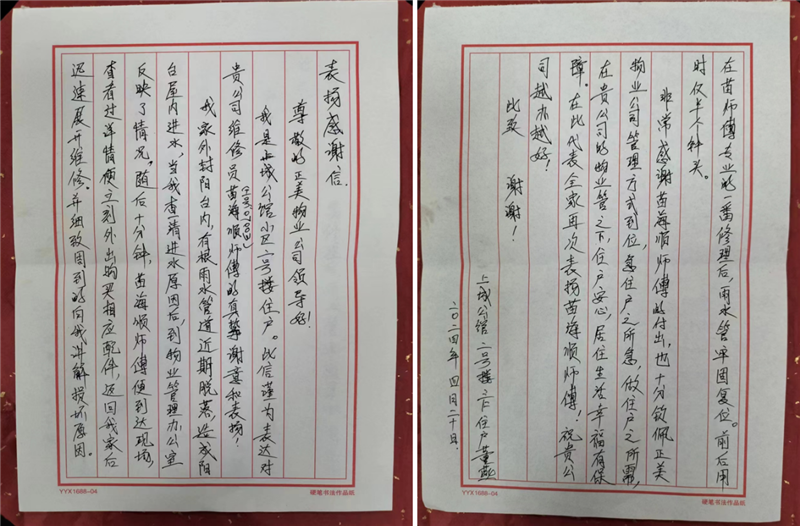 表扬感谢信
尊敬的正美物业公司领导好！
我是上城公馆小区二号楼住户。此信谨为表达对
贵公司维修员苗海顺师傅的真挚谢意和表扬！
我家外封阳台内，有根雨水管道近期脱落，造成阳
台屋内进水，当我查清进水原因后，到物业管理办公室
反映了情况。随后十分钟，苗海顺师傅便到达现场，
查看过详情便立刻外出购买相应配件，返回我家后
迅速展开维修。并细致周到的向我讲解损坏原因。
YYX1688-04
硬笔书法作品纸
在苗师傅专业的一番修理后，雨水管牢固复位。前后用
时仅半个钟头。
非常感谢苗海顺师傅的付出，也十分钦佩正美
物业公司管理方式到位，急住户之所急，做住户之所需，
在贵公司的物业管之下，住户安心，居住生活幸福有保
障。在此代表全家再次表扬苗海顺师傅！祝贵公
司越办越好！
此致 谢谢！
上城公馆 二号楼 住户董燕
二〇二四年 四月二十日.
YYX1688-04
硬笔书法作品纸